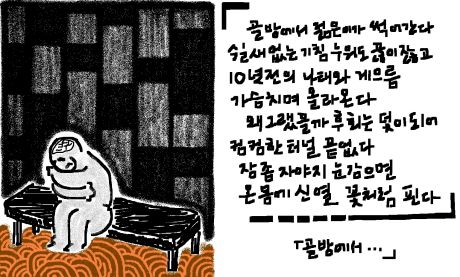 골방에서 젊은이가 썩어간다
쉴새 없는 기침 누워도 끊이잖고
10년전의 나태와 게으름
가슴치며 올라온다
왜 그랬을까 후회는 덫이 되어
컴컴한 터널 끝없다
잠 좀 자야지 눈감으면
온몸에 신열 꽃처럼 핀다
「골방에서 …」